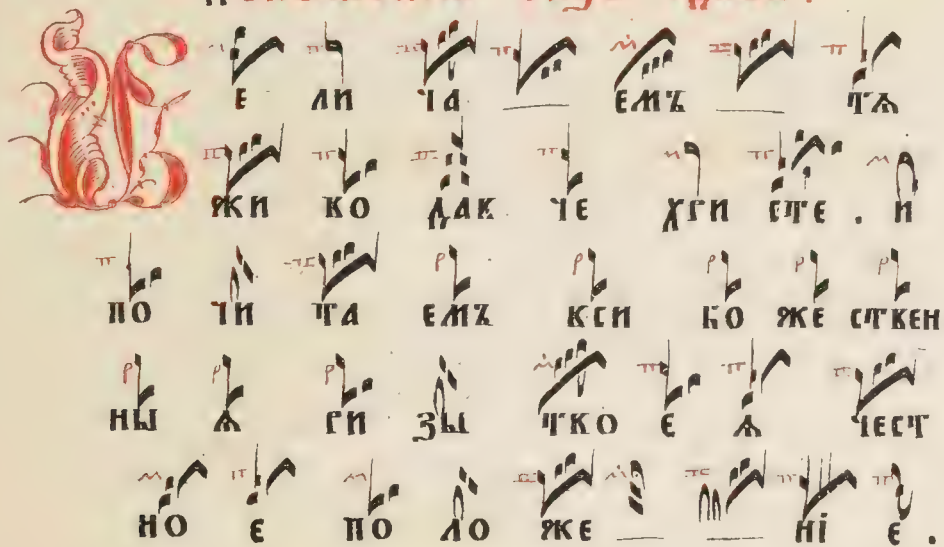 В Е ЛИ ЧА ЕМЪ ТѦ
ЖИ ВО ДАВ ЧЕ ХРИ СТЕ . И
ПО ЧИ ТА ЕМЪ ВСИ БО ЖЕ СТВЕН
НЫ Ѧ РИ ЗЫ ТВО Е Ѧ ЧЕСТ
НО Е ПО ЛО ЖЕ НІ Е .